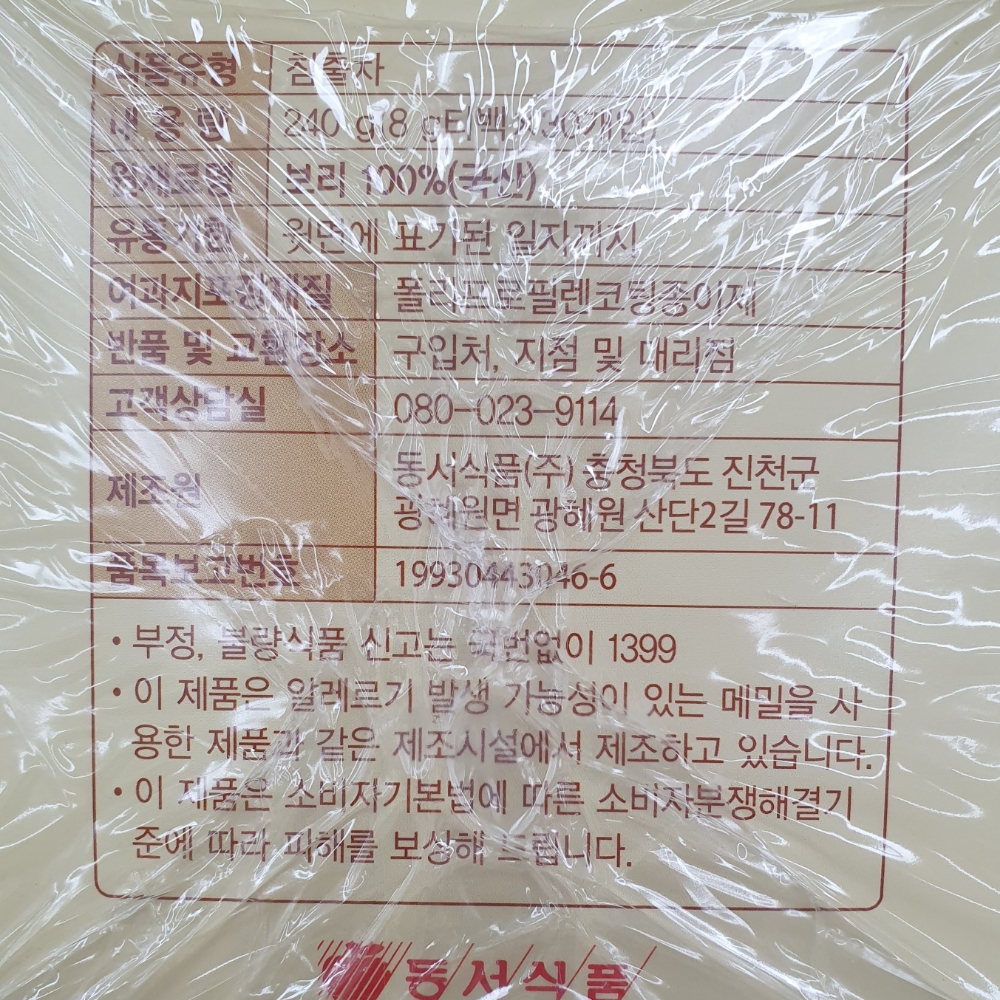 식품유형 침출차
내 용 량 240 g(8 g티백×30개입)
원재료명 보리 100%(국산)
유통기한 윗면에 표기된 일자까지
여과지포장재질 폴리프로필렌코팅종이제
반품 및 교환장소 구입처, 지점 및 대리점
고객상담실 080-023-9114
제조원 동서식품(주) 충청북도 진천군
광혜원면 광혜원 산단2길 78-11
품목보고번호 19930443046-6
• 부정, 불량식품 신고는 국번없이 1399
• 이 제품은 알레르기 발생 가능성이 있는 메밀을 사
용한 제품과 같은 제조시설에서 제조하고 있습니다.
• 이 제품은 소비자기본법에 따른 소비자분쟁해결기
준에 따라 피해를 보상해 드립니다.
동서식품